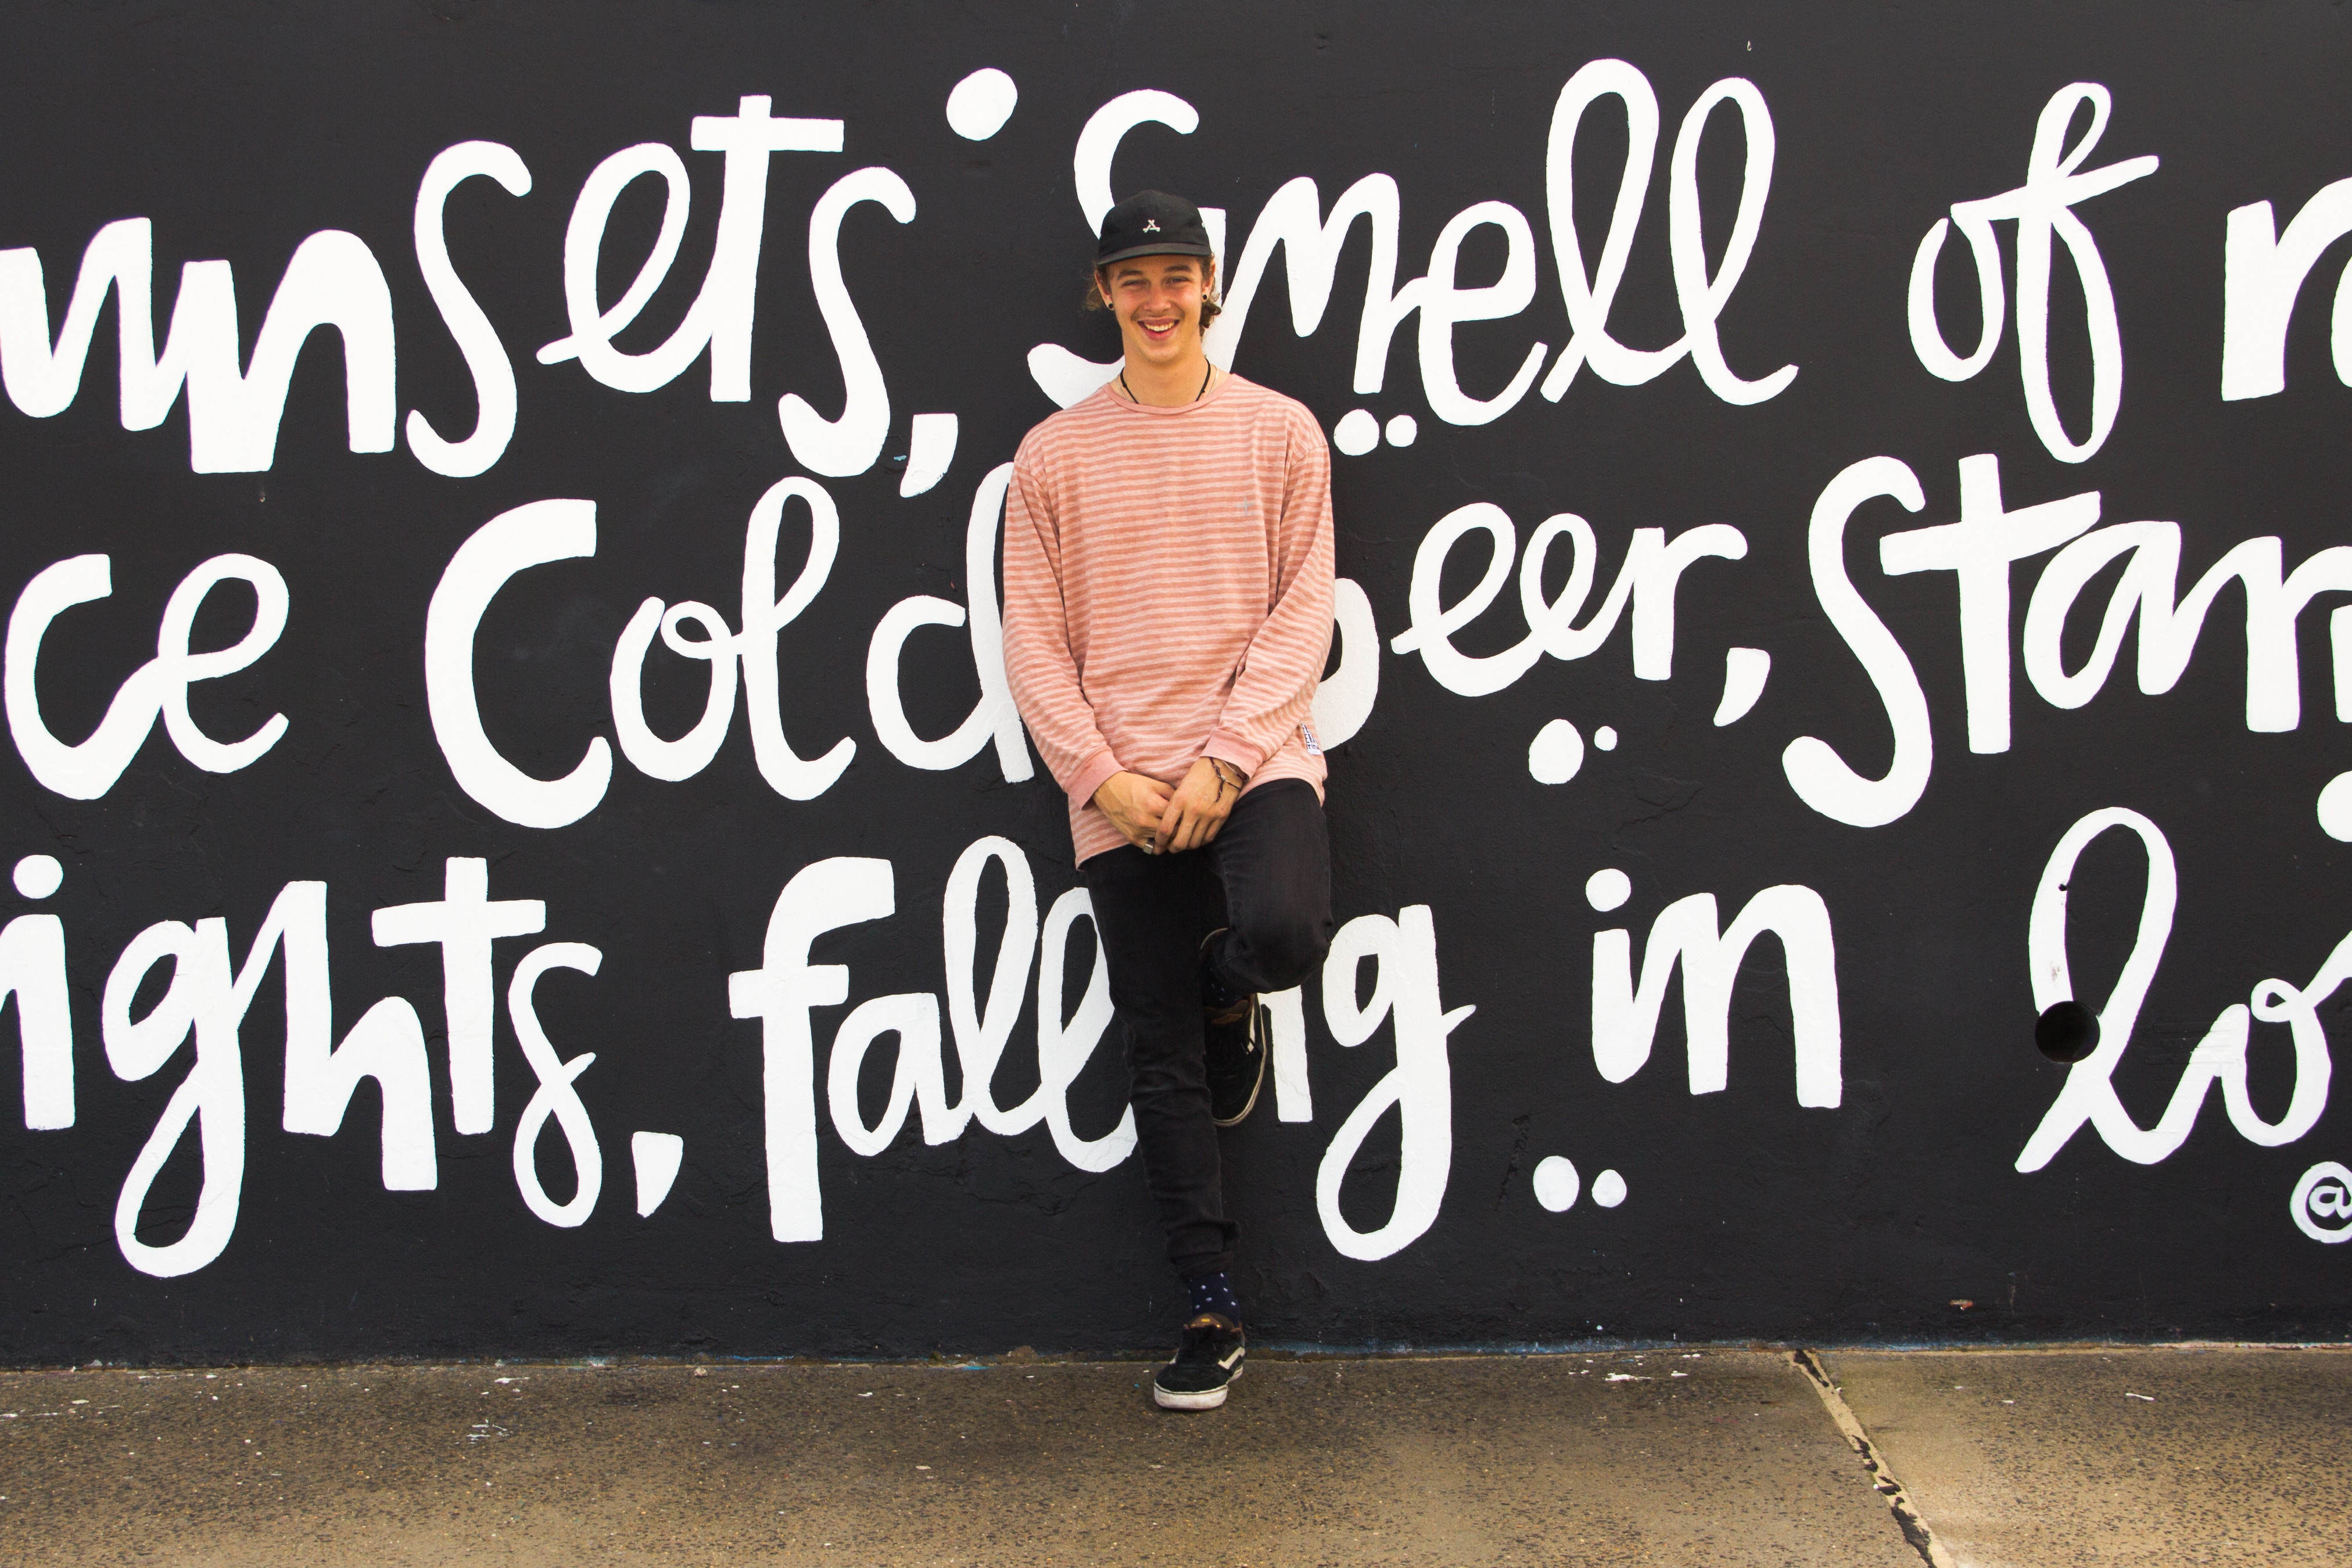 unsets, Smell of r
ce Cold beer, Star
ights, falling in lo
@